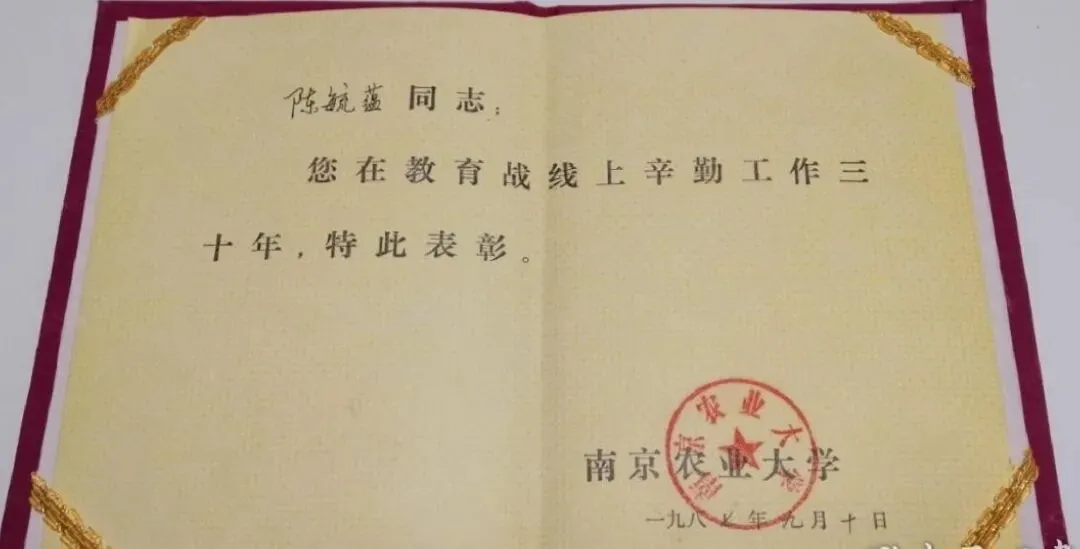 陈毓蕴 同志：
您在教育战线上辛勤工作三
十年，特此表彰。
南京农业大学
南京农业大学
一九八七年九月十日